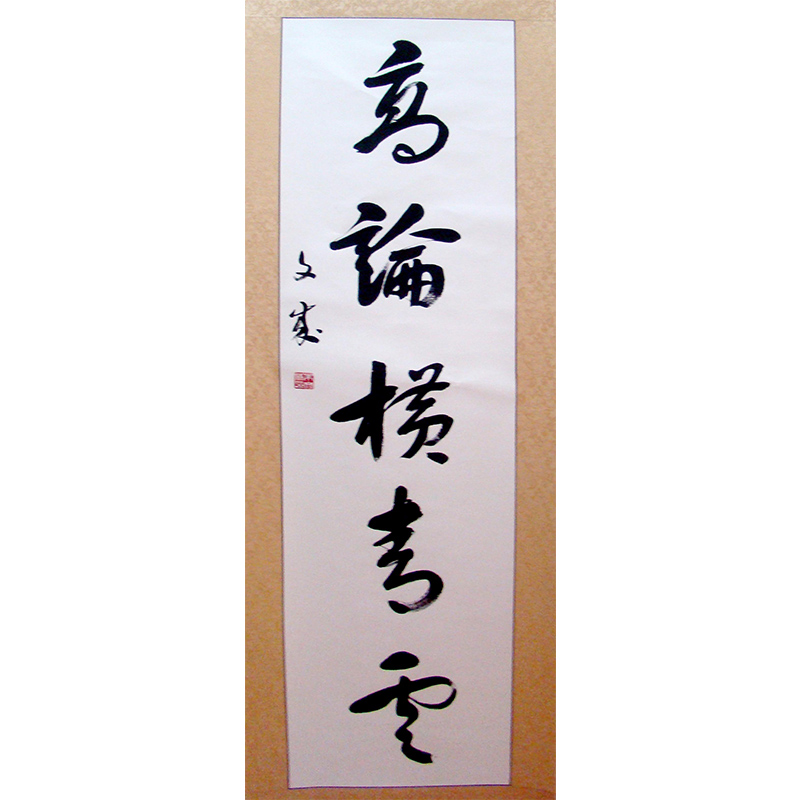 高論橫青雲
文成